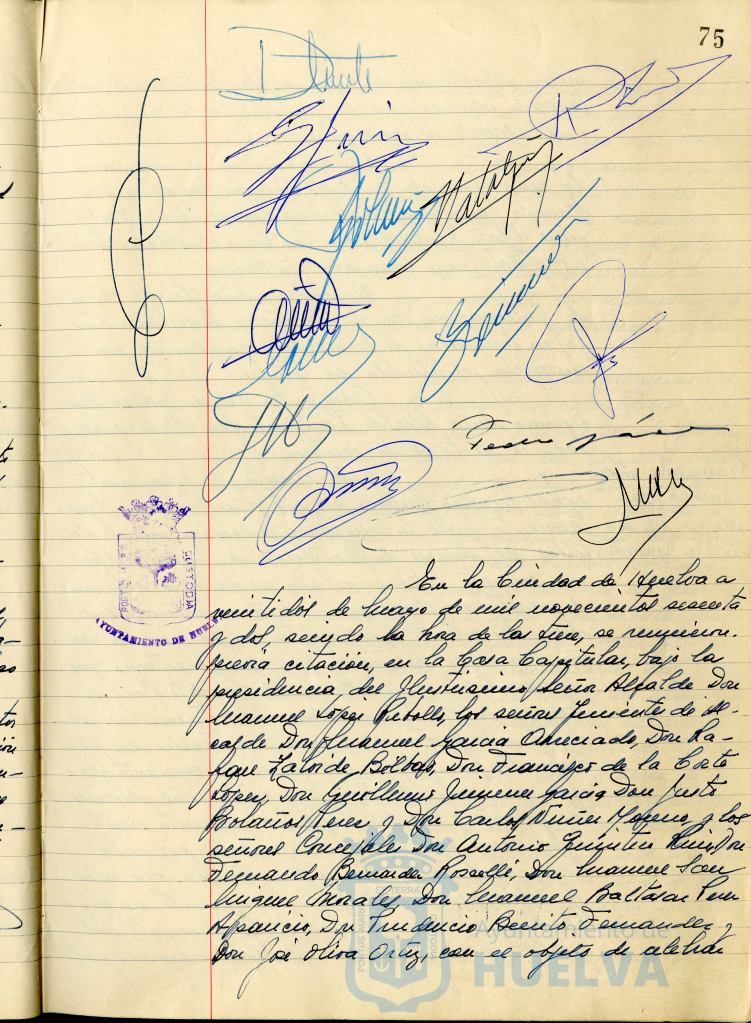 75
Natalio
Pedro
En la Ciudad de Huelva a
veintidos de Mayo de mil novecientos sesenta
y dos, siendo la hora de las trece, se reunieron,
previa citación, en la Casa Capitular, bajo la
presidencia del Ilustrisimo Señor Alcalde Don
Manuel López Rebollo, los señores Teniente de Al-
calde Don Manuel García Aneciado, Don Ra-
fael de Bolbas, Don Francisco de la Corte
López, Don Guillermo Jimenez García Don Justo
Bolaños Perez y Don Carlos Nuñez Moreno y los
señores Concejales Don Antonio Quintin Ruiz, Don
Fernando Bernardez Rosselli, Don Manuel San
Miguel Morales, Don Manuel Baltasar Perez
Aparicio, Don Prudencio Benito Fernandez y
Don José Oliva Ortiz, con el objeto de celebrar
CUSTODIA
AYUNTAMIENTO DE HUELVA
Ayuntamiento de
HUELVA